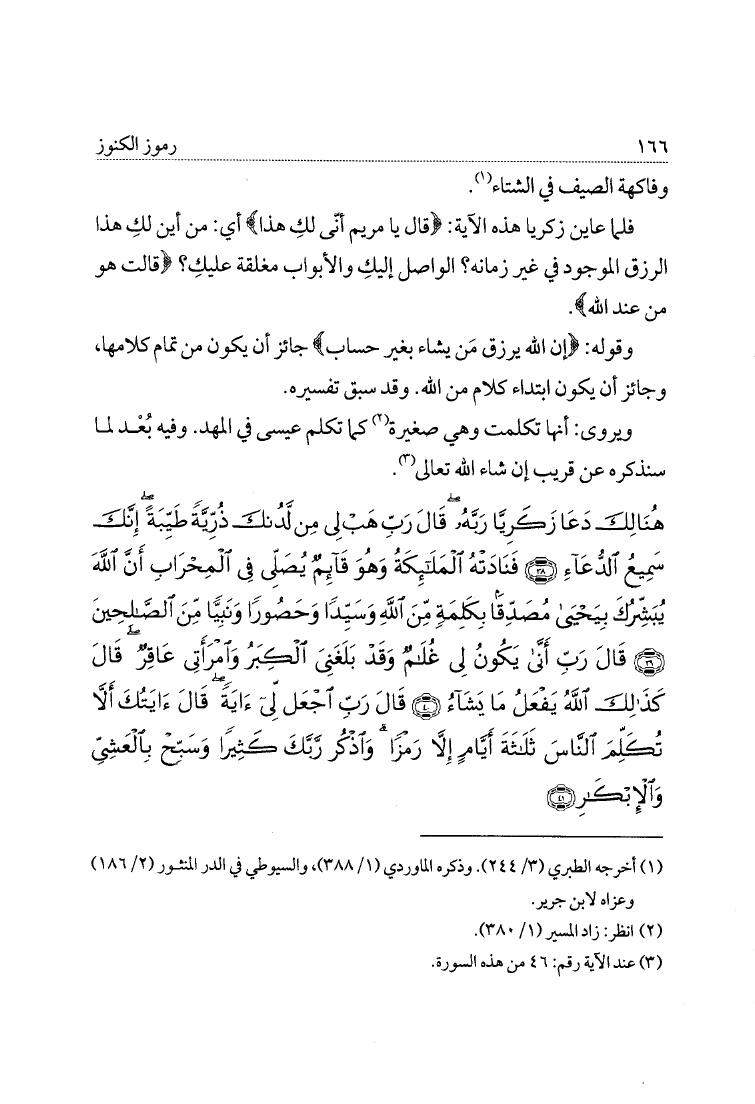 ١٦٦ رموز الكنوز
وفاكهة الصيف في الشتاء(١).
فلما عاين زكريا هذه الآية: ﴿قال يا مريم أنّى لكِ هذا﴾ أي: من أين لكِ هذا
الرزق الموجود في غير زمانه؟ الواصل إليكِ والأبواب مغلقة عليكِ؟ ﴿قالت هو
من عند الله﴾.
وقوله: ﴿إن الله يرزق مَن يشاء بغير حساب﴾ جائز أن يكون من تمام كلامها،
وجائز أن يكون ابتداء كلام من الله. وقد سبق تفسيره.
ويروى: أنها تكلمت وهي صغيرة(٢) كما تكلم عيسى في المهد. وفيه بُعْد لما
سنذكره عن قريب إن شاء الله تعالى(٣).
هُنَالِكَ دَعَا زَكَرِيَّا رَبَّهُۥ ۖ قَالَ رَبِّ هَبْ لِى مِن لَّدُنكَ ذُرِّيَّةً طَيِّبَةً ۖ إِنَّكَ
سَمِيعُ ٱلدُّعَآءِ ﴿٣٨﴾ فَنَادَتْهُ ٱلْمَلَـٰٓئِكَةُ وَهُوَ قَآئِمٌ يُصَلِّى فِى ٱلْمِحْرَابِ أَنَّ ٱللَّهَ
يُبَشِّرُكَ بِيَحْيَىٰ مُصَدِّقًۢا بِكَلِمَةٍ مِّنَ ٱللَّهِ وَسَيِّدًا وَحَصُورًا وَنَبِيًّا مِّنَ ٱلصَّـٰلِحِينَ
﴿٣٩﴾ قَالَ رَبِّ أَنَّىٰ يَكُونُ لِى غُلَـٰمٌ وَقَدْ بَلَغَنِىَ ٱلْكِبَرُ وَٱمْرَأَتِى عَاقِرٌ ۖ قَالَ
كَذَٰلِكَ ٱللَّهُ يَفْعَلُ مَا يَشَآءُ ﴿٤٠﴾ قَالَ رَبِّ ٱجْعَل لِّىٓ ءَايَةً ۖ قَالَ ءَايَتُكَ أَلَّا
تُكَلِّمَ ٱلنَّاسَ ثَلَـٰثَةَ أَيَّامٍ إِلَّا رَمْزًا ۗ وَٱذْكُر رَّبَّكَ كَثِيرًا وَسَبِّحْ بِٱلْعَشِىِّ
وَٱلْإِبْكَـٰرِ ﴿٤١﴾
(١) أخرجه الطبري (٣/ ٢٤٤). وذكره الماوردي (١/ ٣٨٨)، والسيوطي في الدر المنثور (٢/ ١٨٦)
وعزاه لابن جرير.
(٢) انظر: زاد المسير (١/ ٣٨٠).
(٣) عند الآية رقم: ٤٦ من هذه السورة.